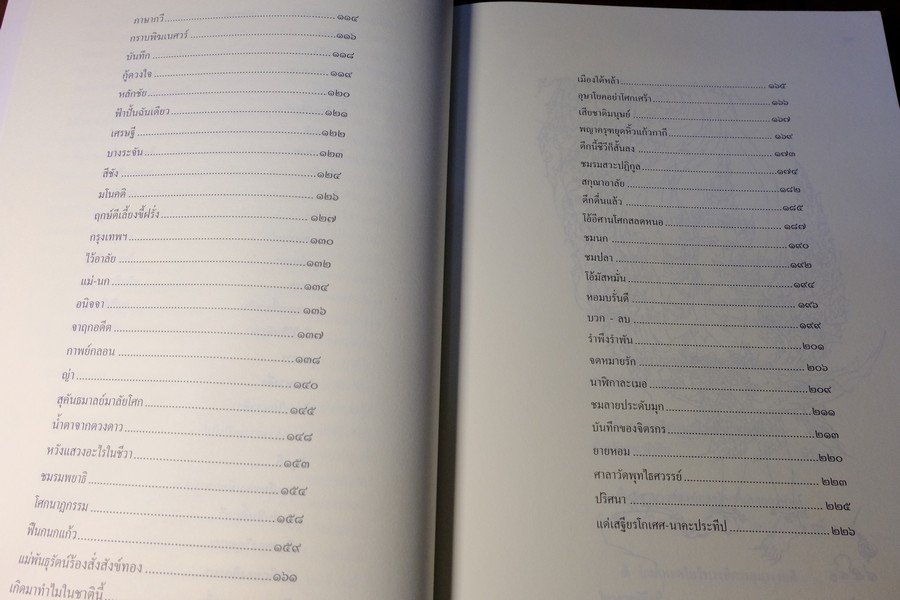 ภามากวี ๑๑๔
กราบพิฆเนศวร์ ๑๑๖
บันทึก ๑๑๘
กู้ดวงใจ ๑๑๙
หลักชัย ๑๒๐
ฟ้าปั้นฉันเดียว ๑๒๑
เศรษฐี ๑๒๒
บางระจัน ๑๒๓
สีชัง ๑๒๔
มโนคติ ๑๒๖
ฤกษ์ดีเลี้ยงขี้ฝรั่ง ๑๒๗
กรุงเทพฯ ๑๓๐
ไว้อาลัย ๑๓๒
แม่-นก ๑๓๔
อนิจจา ๑๓๖
จาฤกอดีต ๑๓๗
กาพย์กลอน ๑๓๘
ญ่า ๑๔๐
สุคันธมาลย์มาลัยโศก ๑๔๕
น้ำตาจากดวงดาว ๑๔๘
หวังแสวงอะไรในชีวา ๑๕๓
ชมรมพยาธิ ๑๕๔
โศกนาฏกรรม ๑๕๘
ฟืนกนกแก้ว ๑๕๙
แม่พันธุรัตน์ร้องสั่งสังข์ทอง ๑๖๑
เกิดมาทำไมในชาตินี้
เมืองใต้หล้า ๑๖๕
อุษาโยคอย่าโศกเศร้า ๑๖๖
เสียชาติมนุษย์ ๑๖๗
พญาครุฑยุดหิ้วแก้วกากี ๑๖๙
ดึกนี้ชีวีก็สิ้นลง ๑๗๓
ชมรมสวะปฏิกูล ๑๗๔
สกุณาอาลัย ๑๘๒
ดึกดื่นแล้ว ๑๘๕
โอ้อีศานโศกสลดหนอ ๑๘๗
ชมนก ๑๙๐
ชมปลา ๑๙๒
โอ้มัสหมั่น ๑๙๔
หอมบรั่นดี ๑๙๖
บวก - ลบ ๑๙๙
รำพึงรำพัน ๒๐๑
จดหมายรัก ๒๐๖
นาฬิกาละเมอ ๒๐๙
ชมลายประดับมุก ๒๑๑
บันทึกของจิตรกร ๒๑๓
ยายหอม ๒๒๐
ศาลาวัดพุทไธศวรรย์ ๒๒๓
ปริศนา ๒๒๕
แด่เสฐียรโกเศศ-นาคะประทีป ๒๒๖